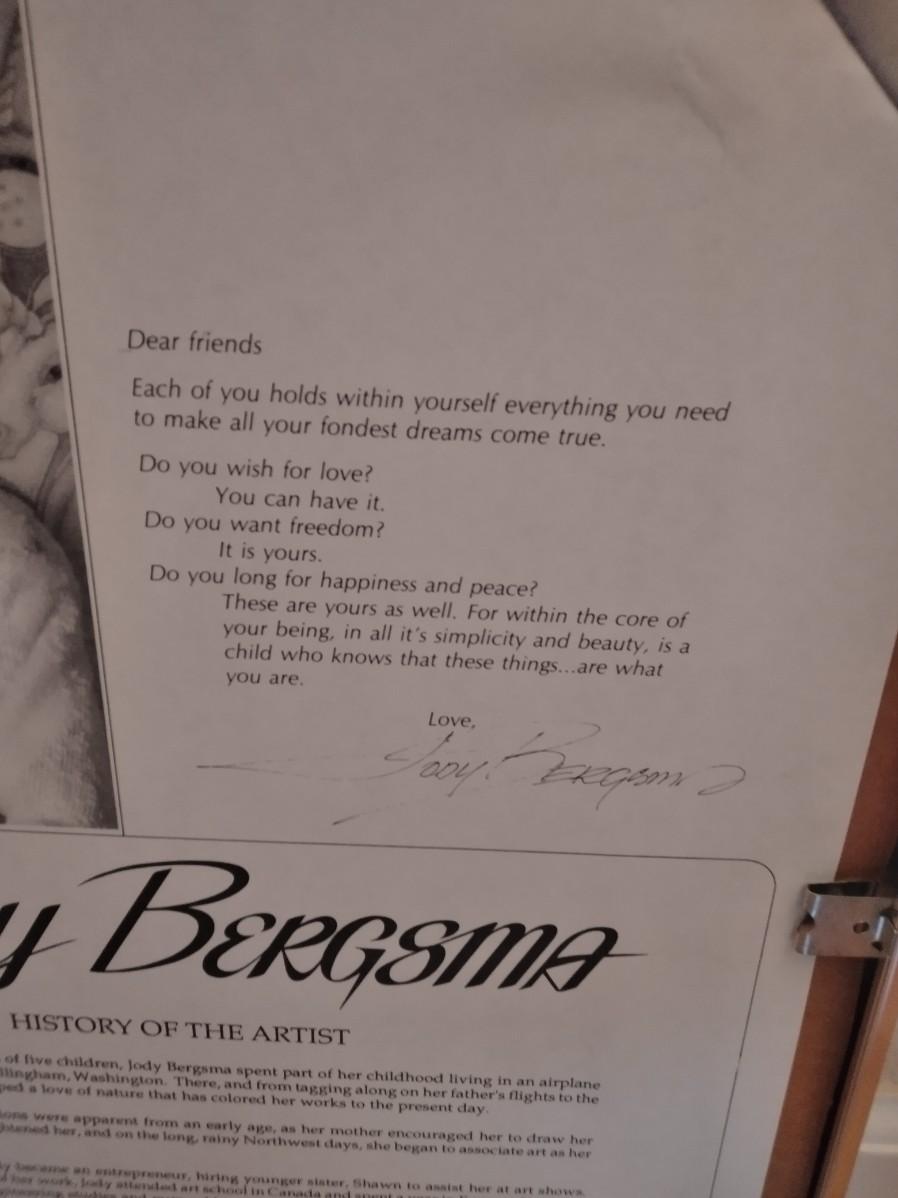 Dear friends
Each of you holds within yourself everything you need
to make all your fondest dreams come true.
Do you wish for love?
You can have it.
Do you want freedom?
It is yours.
Do you long for happiness and peace?
These are yours as well. For within the core of
your being, in all it's simplicity and beauty, is a
child who knows that these things...are what
you are.
Love,
Jody Bergsma
y BERGSMA
HISTORY OF THE ARTIST
of five children, Jody Bergsma spent part of her childhood living in an airplane
llingham, Washington. There, and from tagging along on her father's flights to the
ped a love of nature that has colored her works to the present day.
ions were apparent from an early age, as her mother encouraged her to draw her
htened her, and on the long, rainy Northwest days, she began to associate art as her
y became an entrepreneur, hiring younger sister, Shawn to assist her at art shows.
her work, Jody attended art school in Canada and spent a year in